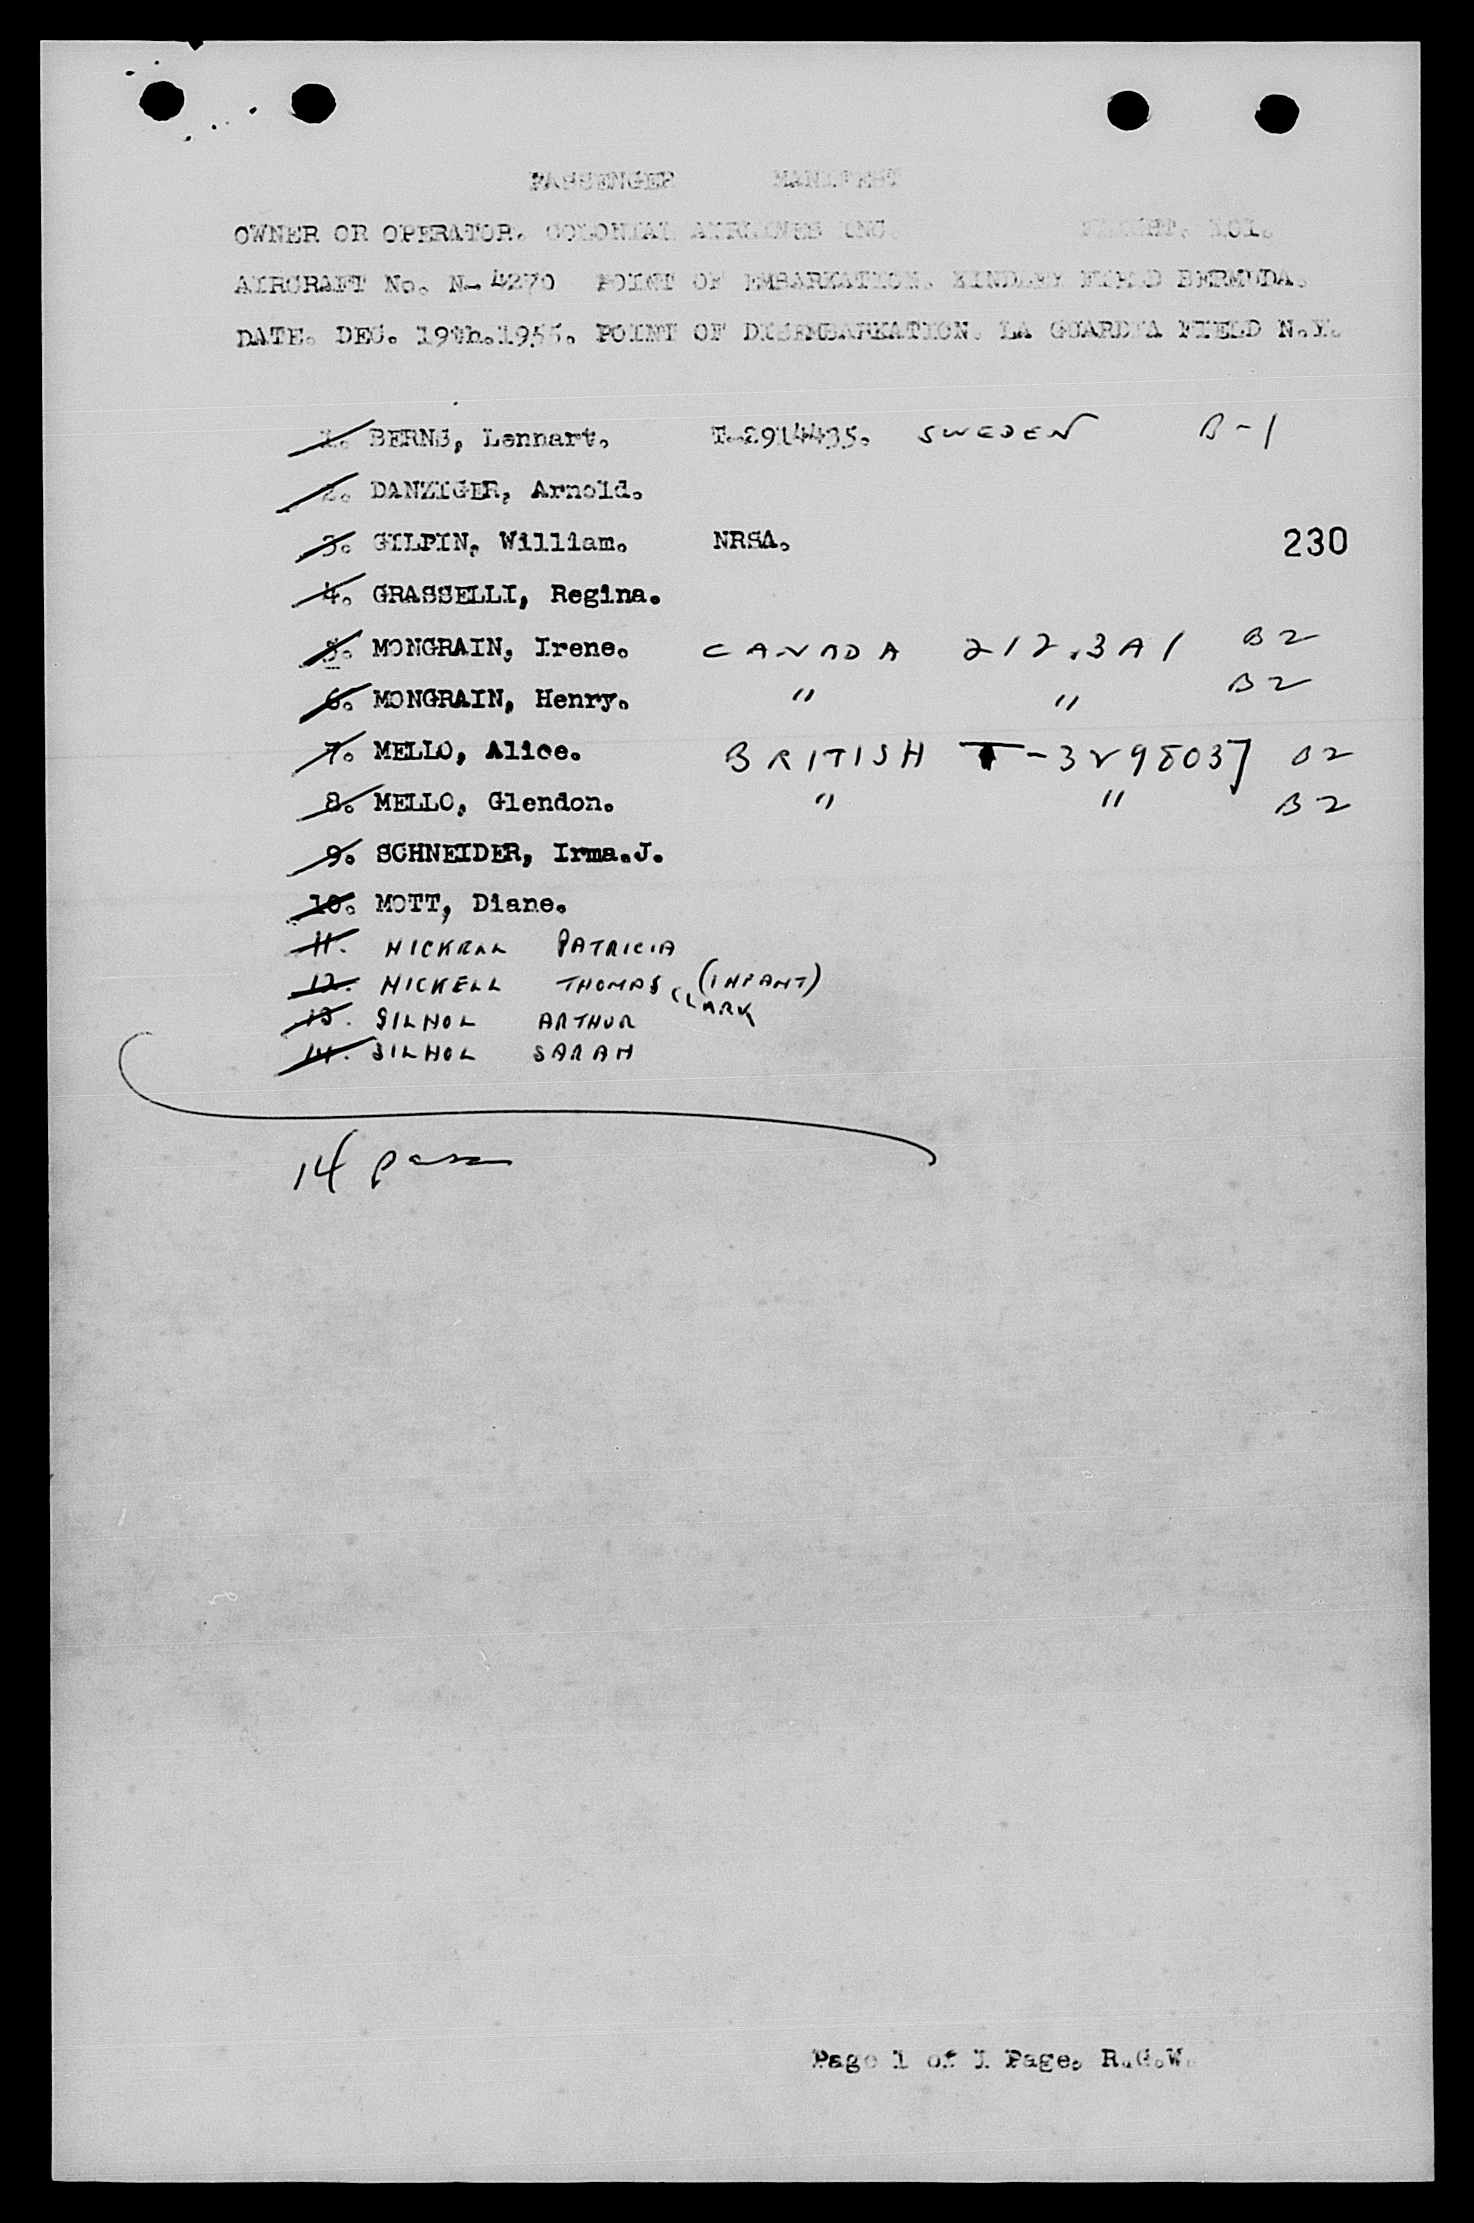 PASSENGER MANIFEST
OWNER OR OPERATOR. COLONIAL AIRLINES INC. FLIGHT. 101.
AIRCRAFT No. N-4270 POINT OF EMBARKATION. KINDLEY FIELD BERMUDA.
DATE. DEC. 19th.1955. POINT OF DISEMBARKATION. LA GUARDIA FIELD N.Y.
1. BERNS, Lennart. T-2914435. SWEDEN B-1
2. DANZIGER, Arnold.
3. GILPIN, William. NRSA. 230
4. GRASSELLI, Regina.
5. MONGRAIN, Irene. CANADA 212.3A1 B2
6. MONGRAIN, Henry. " " B2
7. MELLO, Alice. BRITISH T-3298037 B2
8. MELLO, Glendon. " " B2
9. SCHNEIDER, Irma.J.
10. MOTT, Diane.
11. HICKELL PATRICIA
12. HICKELL THOMAS CLARK (INFANT)
13. SILHOL ARTHUR
14. SILHOL SARAH
14 pass
Page 1 of 1 Page. R.G.W.